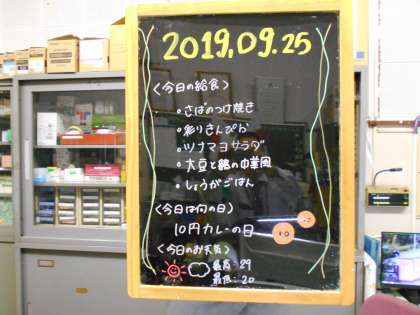 2019.09.25
〈今日の給食〉
・さばのつけ焼き
・彩りきんぴら
・ツナマヨサラダ
・大豆と鶏の中華風
・しょうがごはん
〈今日は何の日〉
10円カレーの日
10
〈今日のお天気〉
最高：29
最低：20